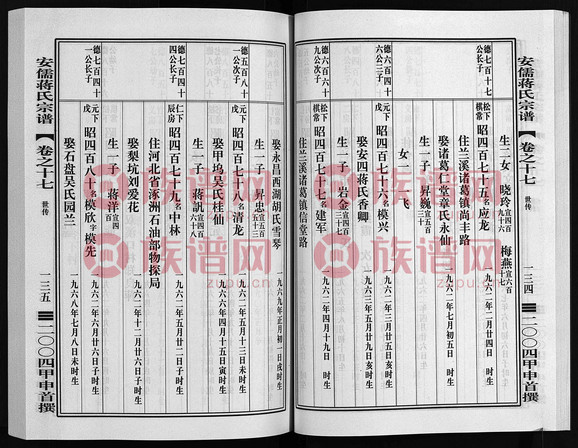 安儒蒋氏宗谱
卷之十七
世传
一三四
二〇〇四甲申首撰
生二女 晓玲宣四百九十六 梅燕宣六百
德七百十七公长子
松下棋常
昭四百七十五名应龙
一九六二年二月廿四日 时生
住兰溪诸葛镇尚丰路
娶诸葛仁堂章氏永仙
一九六二年七月初五日 时生
生一子 昇巍宣五百三十
女一飞
德六百四十六公三子
元下戊
昭四百七十六名模兴
一九六二年三月廿五日亥时生
娶安四蒋氏香卿
一九六三年五月廿九日亥时生
生一子 岩金宣四百三十七
德六百六十九公次子
松下棋常
昭四百七十七名建军
住兰溪诸葛镇信堂路
娶永昌西湖胡氏雪琴
一九六九年正月初二日戌时生
生一子 昇忠宣五百三十三
德五百八十一公次子
元下戊
昭四百七十八名清龙
一九六二年五月十三日未时生
娶甲坞吴氏桂仙
一九六六年四月十五日寅时生
生一子 蒋帆宣四百六十八
德七百四十四公长子
仁下辰房
昭四百七十九名中林
一九六二年五月廿二日 时生
住河北省涿洲石油部物探局
娶梨坑刘爱花
一九六二年十二月廿六日子时生
生一子 蒋洋宣四百
德七百四十一公长子
元下戊
昭四百八十名模欣字模先
一九六二年六月廿六日子时生
娶石盘吴氏园兰
一九六八年七月八日未时生
安儒蒋氏宗谱
卷之十七
世传
一三五
二〇〇四甲申首撰
族谱网
zupu.cn
族谱网
zupu.cn